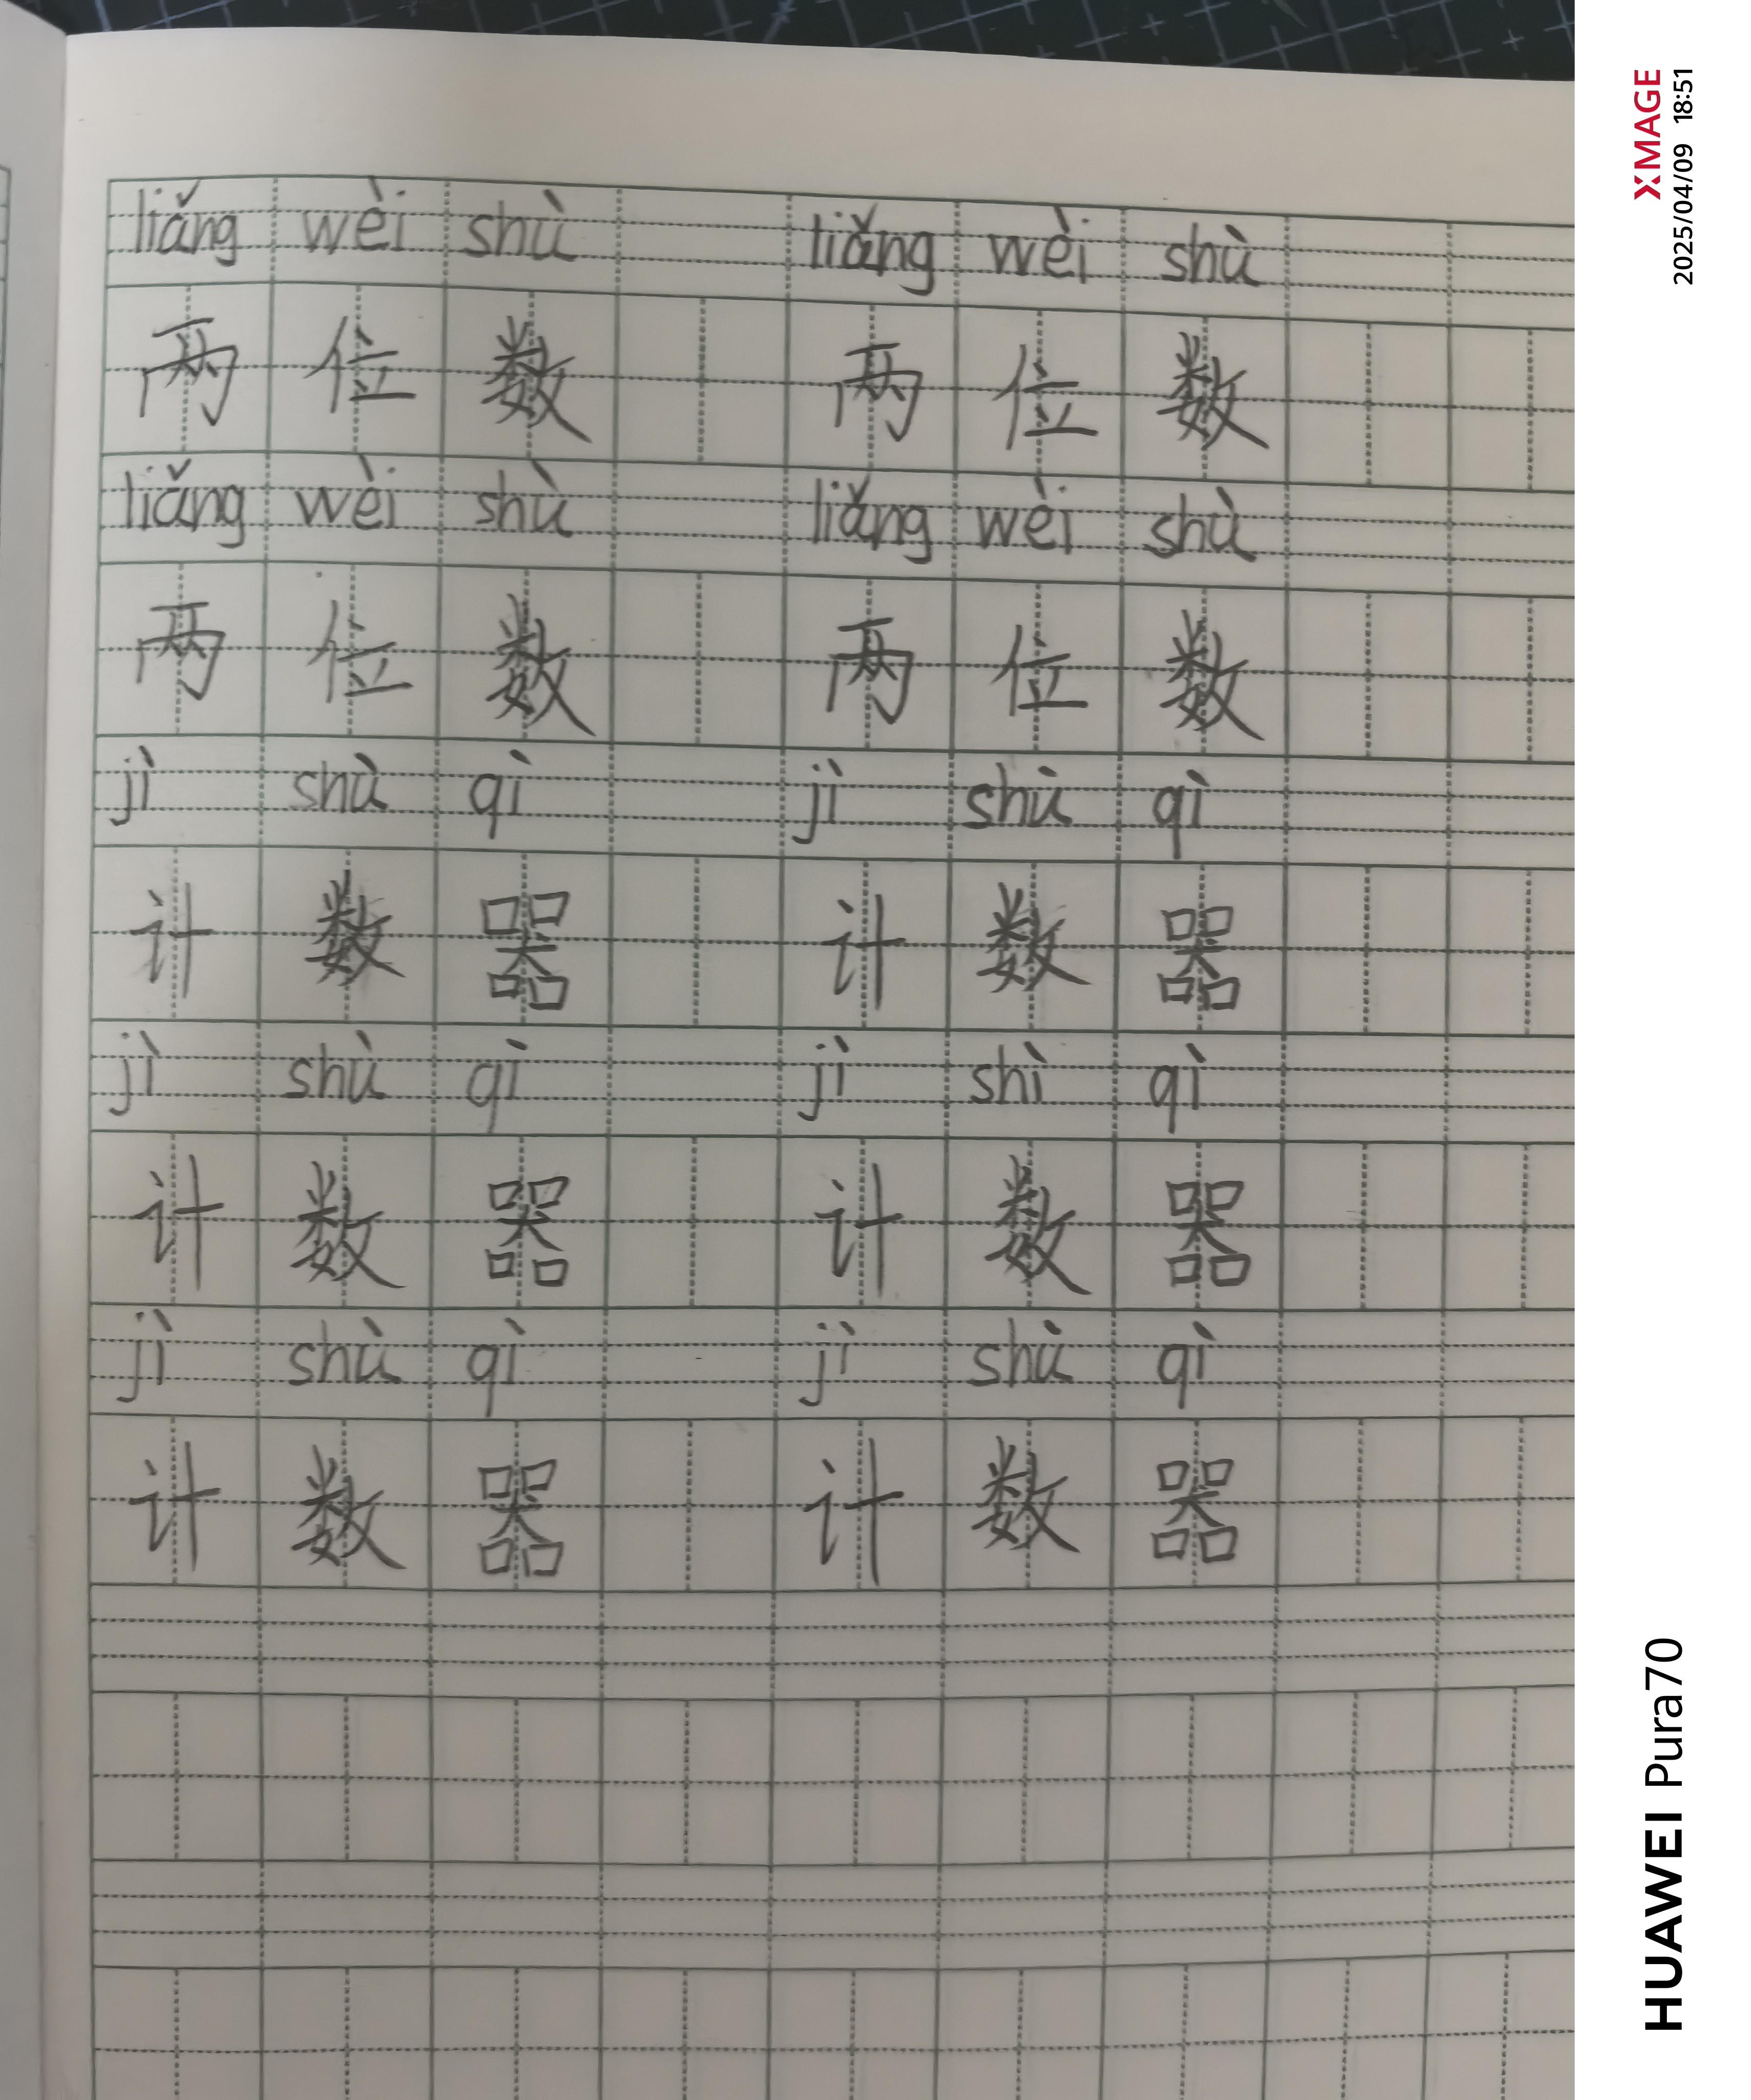 liǎng wèi shù liǎng wèi shù
两位数 两位数
liǎng wèi shù liǎng wèi shù
两位数 两位数
jì shù qì jì shù qì
计数器 计数器
jì shù qì jì shì qì
计数器 计数器
jì shù qì jì shù qì
计数器 计数器
XMAGE
2025/04/09 18:51
HUAWEI Pura70